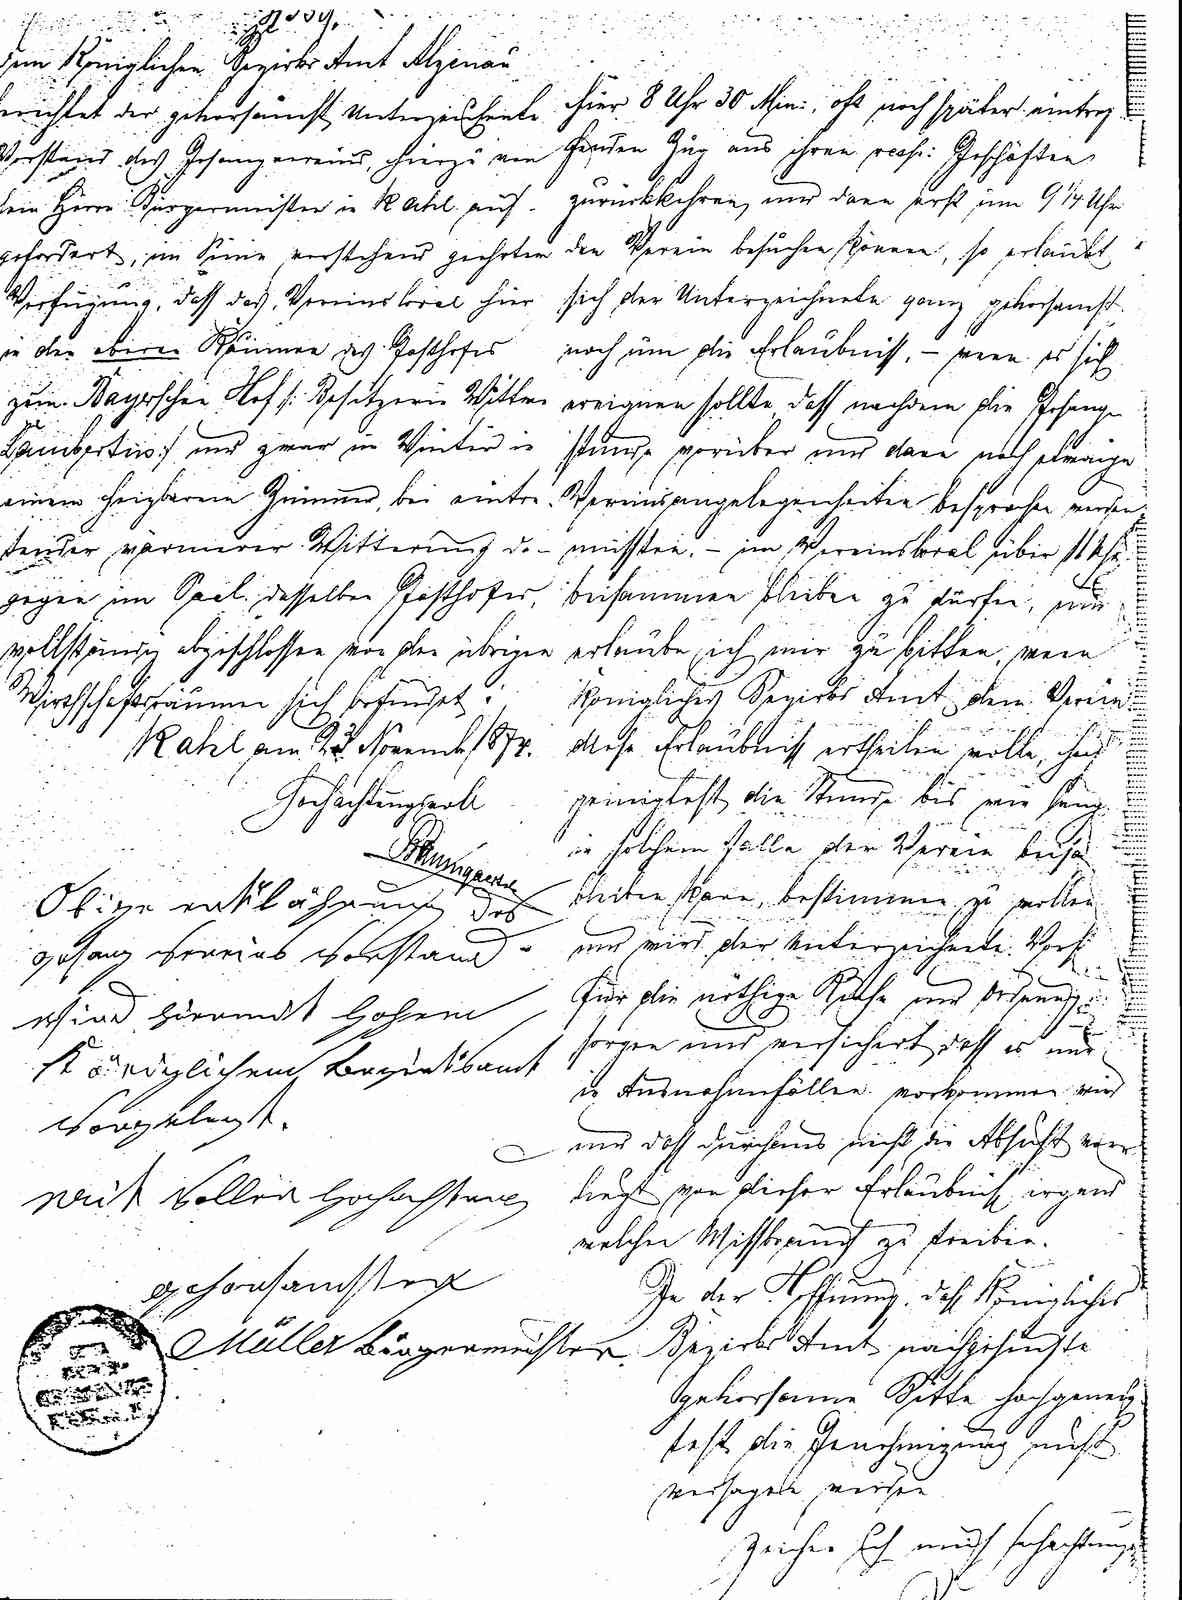 dem Königlichen Bezirks Amt Alzenau
berichtet der gehorsamst Unterzeichnete
Vorstand des Gesangvereins, hierzu von
dem Herrn Bürgermeister in Kahl auf-
gefordert, im Sinne vorstehend geehrten
Verfügung, dass das Vereinslocal hier
in den oberen Räumen des Gasthofes
zum Bayerschen Hof /: Besitzerin Wittwe
Lambertus :/ und zwar im Winter in
einem heizbarem Zimmer, bei eintre-
tender wärmerer Witterung da-
gegen im Saal desselben Gasthofes,
vollständig abgeschlossen von den übrigen
Wirthschaftsräumen sich befindet.
Kahl am 23 Novemb. 1874.
Hochachtungsvoll
Baumgarten
Obige erklährung des
gesang Vereins Vorstand
wird hiermit hohem
Königlichem Bezirksamt
vorgelegt.
mit voller hochachtung
gehorsamster
Müller Bürgermeister
hier 8 Uhr 30 Min:, oft noch später eintref
fenden Zug aus ihren resp: Geschäften
zurückkehren, und dann erst um 9 1/4 Uhr
den Verein besuchen können, so erlaubt
sich der Unterzeichnete ganz gehorsamst
noch um die Erlaubniss, – wenn es sich
ereignen sollte dass nachdem die Gesang-
stunde vorüber und dann noch etwaige
Vereinsangelegenheiten besprochen werden
müssten, – im Vereinslocal über 11 Uhr
beisammen bleiben zu dürfen, nun
erlaube ich mir zu bitten, wenn
Königliches Bezirks Amt dem Verein
diese Erlaubniss ertheilen wolle, hoch
geneigtest die Stunde bis wie lang
in solchem Falle der Verein beisa
bleiben kann, bestimmen zu wollen
und wird der Unterzeichnete Vorst
für die nöthige Ruhe und Ordnung
sorgen und versichert dass es nur
in Ausnahmfällen vorkommen wird
und dass durchaus nicht die Absicht vor
liegt von dieser Erlaubniss irgend
welchen Missbrauch zu treiben.
In der Hoffnung, dass Königliches
Bezirks Amt nachgesuchte
gehorsame Bitte hochgeneig
test die Genehmigung nicht
versagen werden
zeichne ich mich hochachtungs